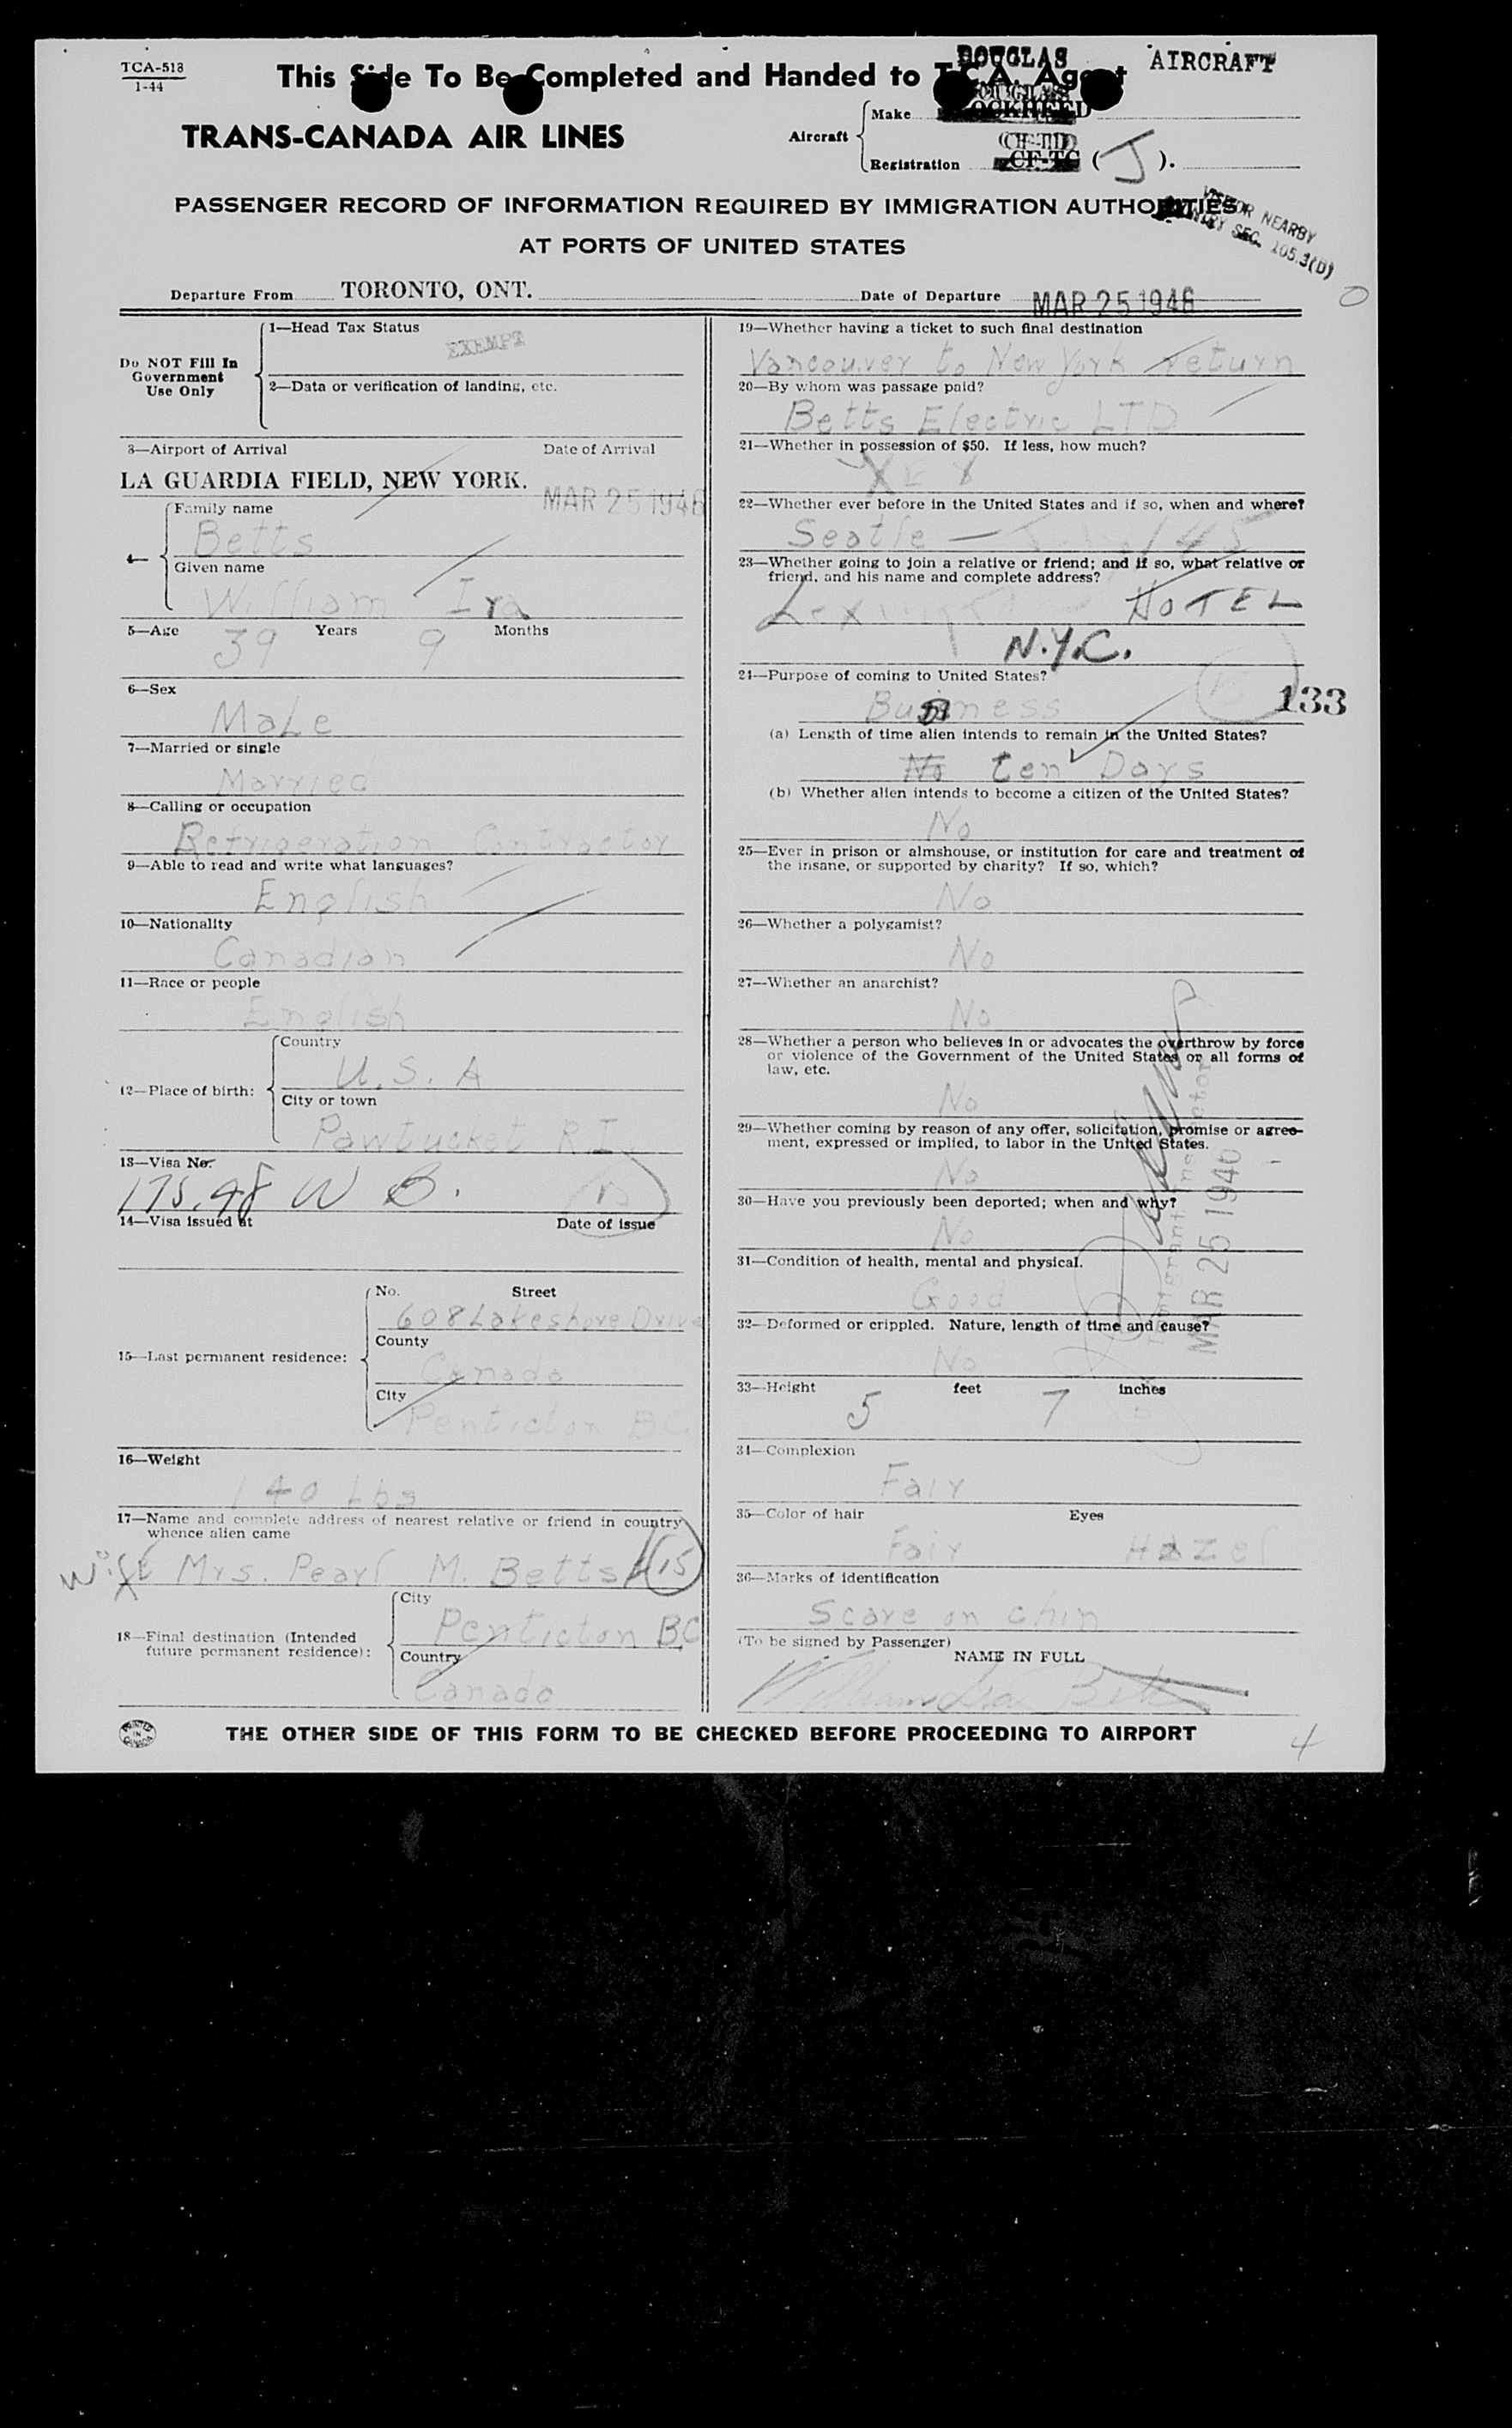 TCA-518
1-44
This Side To Be Completed and Handed to T.C.A. Agent
DOUGLAS AIRCRAFT
TRANS-CANADA AIR LINES
Aircraft
Make DOUGLAS LOCKHEED
Registration CF-TC (J).
PASSENGER RECORD OF INFORMATION REQUIRED BY IMMIGRATION AUTHORITIES
AT PORTS OF UNITED STATES
VISITOR NEARBY
ENTRY SEC. 105.3(D)
Departure From TORONTO, ONT. Date of Departure MAR 25 1946
0
Do NOT Fill In
Government
Use Only
1—Head Tax Status
EXEMPT
2—Data or verification of landing, etc.
3—Airport of Arrival Date of Arrival
LA GUARDIA FIELD, NEW YORK. MAR 25 1946
4—
Family name
Betts
Given name
William Ira
5—Age 39 Years 9 Months
6—Sex
Male
7—Married or single
Married
8—Calling or occupation
Refrigeration Contractor
9—Able to read and write what languages?
English
10—Nationality
Canadian
11—Race or people
English
12—Place of birth:
Country
U.S.A
City or town
Pawtucket R.I.
13—Visa No.
175.48 W B.
14—Visa issued at Date of issue
15—Last permanent residence:
No. Street
608 Lakeshore Drive
County
Canada
City
Penticton BC
16—Weight
140 Lbs
17—Name and complete address of nearest relative or friend in country
whence alien came
wife Mrs. Pearl M. Betts (15)
18—Final destination (Intended
future permanent residence):
City
Penticton BC
Country
Canada
19—Whether having a ticket to such final destination
Vancouver to New York return
20—By whom was passage paid?
Betts Electric LTD
21—Whether in possession of $50. If less, how much?
22—Whether ever before in the United States and if so, when and where?
Seatle — /45
23—Whether going to join a relative or friend; and if so, what relative or
friend, and his name and complete address?
Lexington HOTEL
N.Y.C.
24—Purpose of coming to United States?
Business
133
(a) Length of time alien intends to remain in the United States?
No ten Days
(b) Whether alien intends to become a citizen of the United States?
No
25—Ever in prison or almshouse, or institution for care and treatment of
the insane, or supported by charity? If so, which?
No
26—Whether a polygamist?
No
27—Whether an anarchist?
No
28—Whether a person who believes in or advocates the overthrow by force
or violence of the Government of the United States or all forms of
law, etc.
No
29—Whether coming by reason of any offer, solicitation, promise or agree-
ment, expressed or implied, to labor in the United States.
No
30—Have you previously been deported; when and why?
No
31—Condition of health, mental and physical.
Good
Immigrant Inspector
MAR 25 1946
32—Deformed or crippled. Nature, length of time and cause?
No
33—Height 5 feet 7 inches
34—Complexion
Fair
35—Color of hair Eyes
Fair Hazel
36—Marks of identification
Scare on chin
(To be signed by Passenger)
NAME IN FULL
William Ira Betts
PRINTED IN CANADA
THE OTHER SIDE OF THIS FORM TO BE CHECKED BEFORE PROCEEDING TO AIRPORT
4